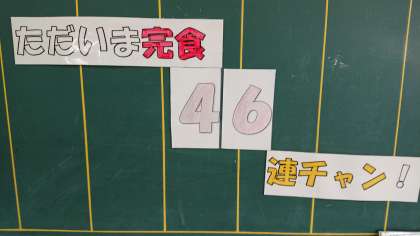 ただいま完食
46
連チャン!